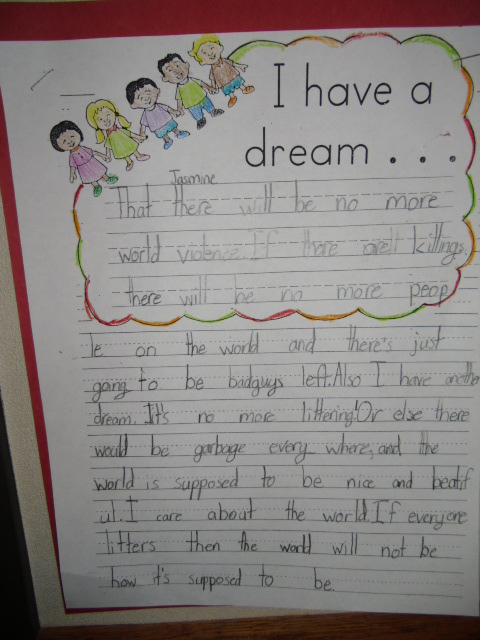 I have a
dream . . .
Jasmine
That there will be no more
world violence. If there are killings,
there will be no more peop
le on the world and there's just
going to be badguys left. Also I have another
dream. It's no more littering! Or else there
would be garbage every where, and the
world is supposed to be nice and beatif
ul. I care about the world. If everyone
litters then the world will not be
how it's supposed to be.